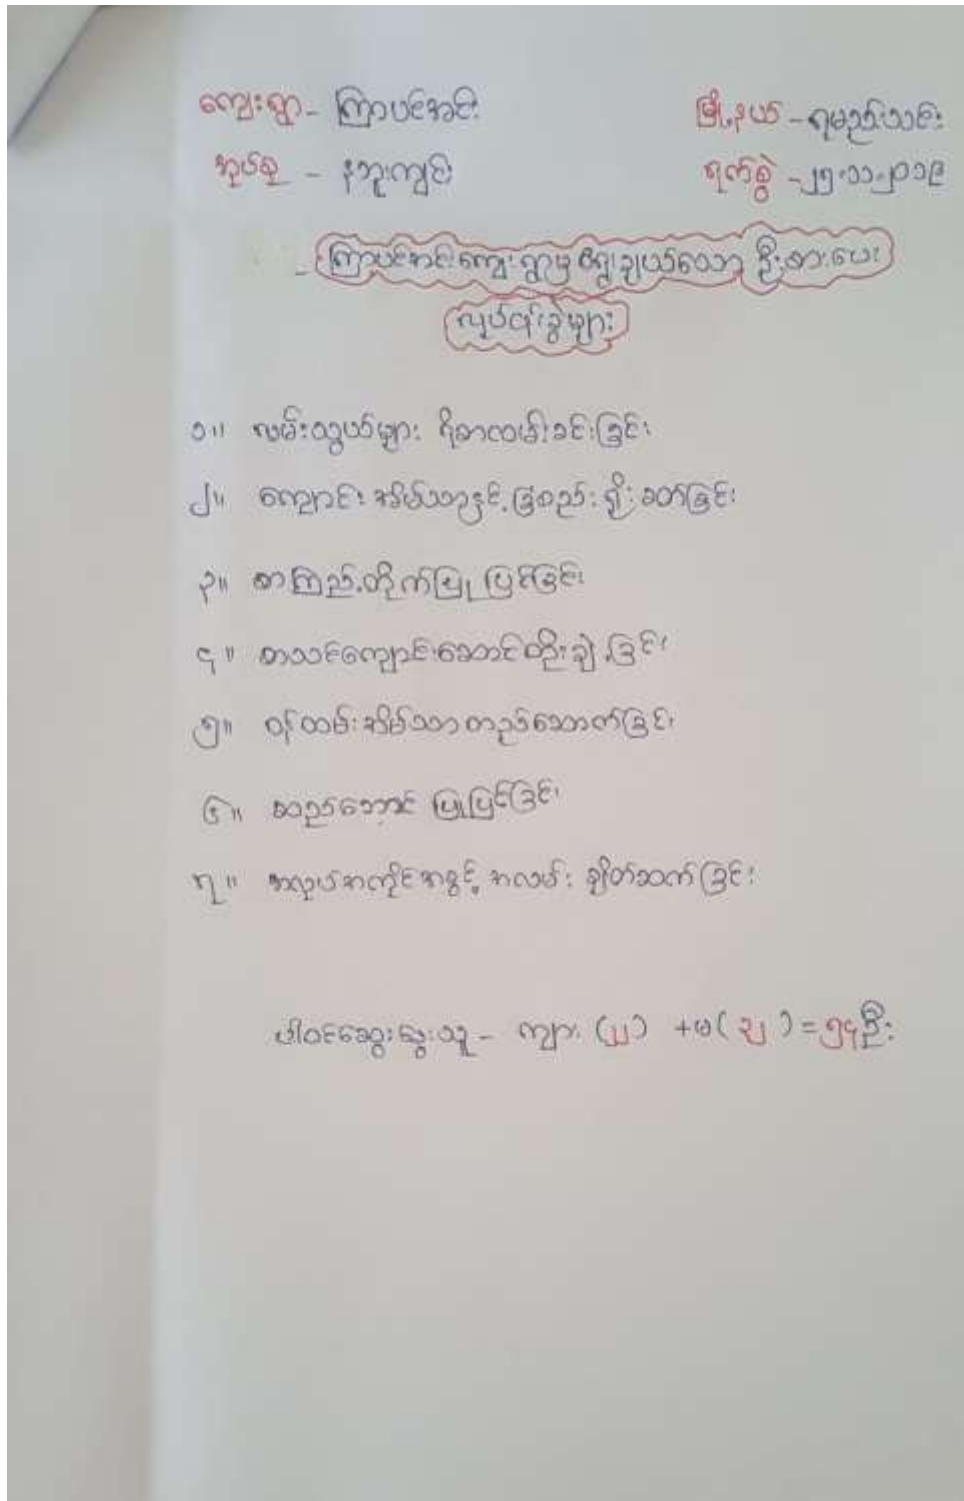 ကျေးရွာ - ကြာပင်အင်း မြို့နယ် - ရမည်းသင်း
အုပ်စု - နဘူးကျင် ရက်စွဲ - ၂၅.၁၁.၂၀၁၉
- ကြာပင်အင်းကျေးရွာမှ ရွေးချယ်သော ဦးစားပေး
လုပ်ငန်းခွဲများ
၁။ လမ်းသွယ်များ ဂိုစာလမ်းခင်းခြင်း
၂။ ကျောင်းအိမ်သာနှင့်ခြံစည်းရိုးခတ်ခြင်း
၃။ စာကြည့်တိုက်ပြုပြင်ခြင်း
၄။ စာသင်ကျောင်းဆောင်တိုးချဲ့ခြင်း
၅။ ဝန်ထမ်းအိမ်သာတည်ဆောက်ခြင်း
၆။ ဆည်ဘောင် ပြုပြင်ခြင်း
၇။ အလုပ်အကိုင်အခွင့်အလမ်း ချိတ်ဆက်ခြင်း
ပါဝင်ဆွေးနွေးသူ - ကျား (၂၂) + မ (၃၂) = ၅၄ဦး